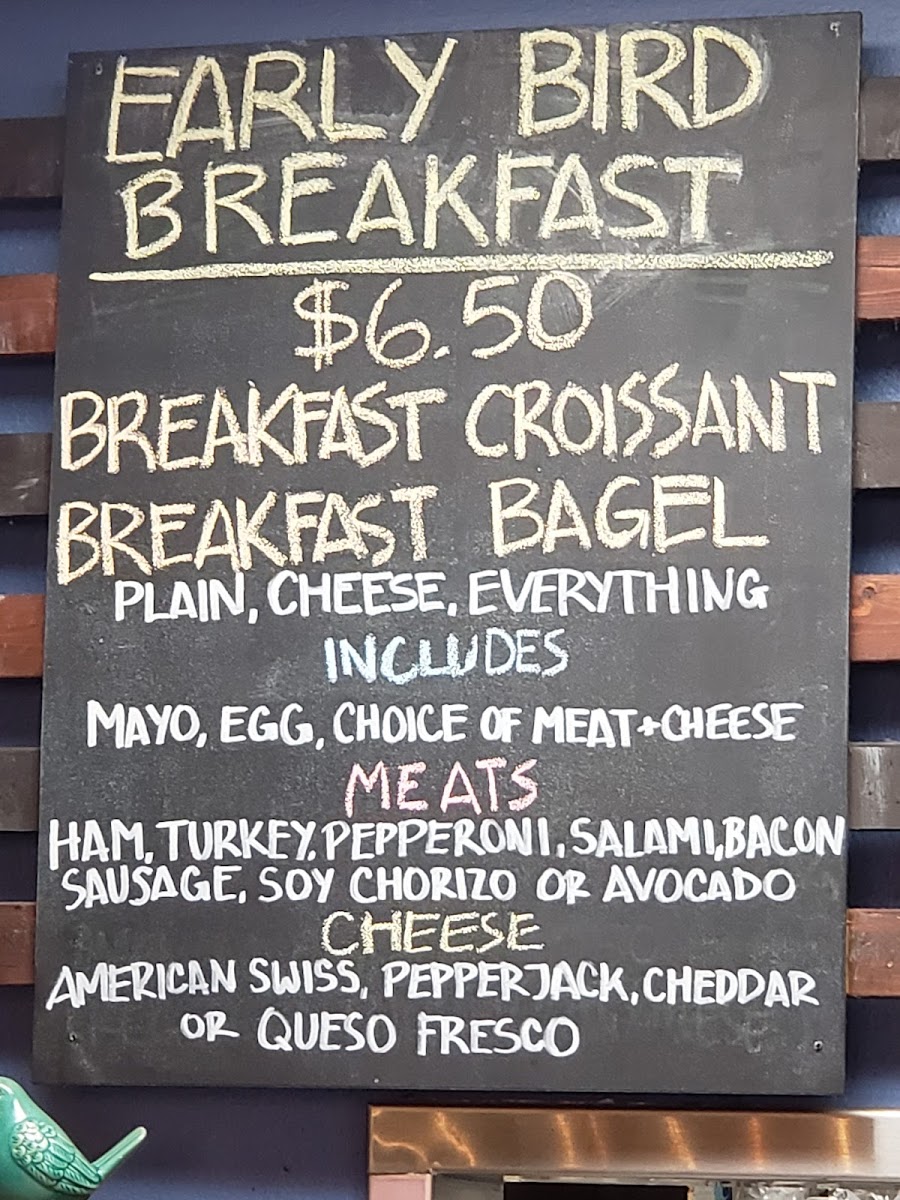 EARLY BIRD
BREAKFAST
$6.50
BREAKFAST CROISSANT
BREAKFAST BAGEL
PLAIN, CHEESE, EVERYTHING
INCLUDES
MAYO, EGG, CHOICE OF MEAT+CHEESE
MEATS
HAM, TURKEY, PEPPERONI, SALAMI, BACON
SAUSAGE, SOY CHORIZO OR AVOCADO
CHEESE
AMERICAN SWISS, PEPPERJACK, CHEDDAR
OR QUESO FRESCO